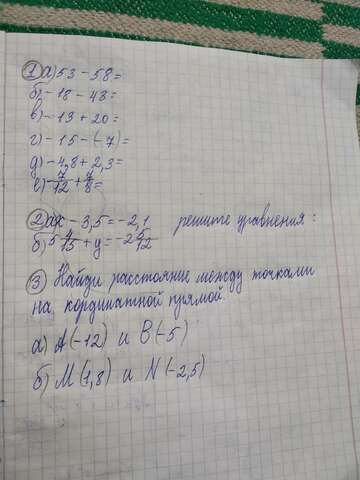 1 а) 53 - 58 =
б) - 18 - 43 =
в) - 19 + 20 =
г) - 15 - (-7) =
д) - 4,8 + 2,3 =
е) - 7/12 + 7/8 =
2 а) x - 3,5 = - 2,1 решите уравнения:
б) 5 4/15 + y = - 2 5/12
3 Найди расстояние между точками
на координатной прямой.
а) A(-12) и B(-5)
б) M(1,8) и N(-2,5)